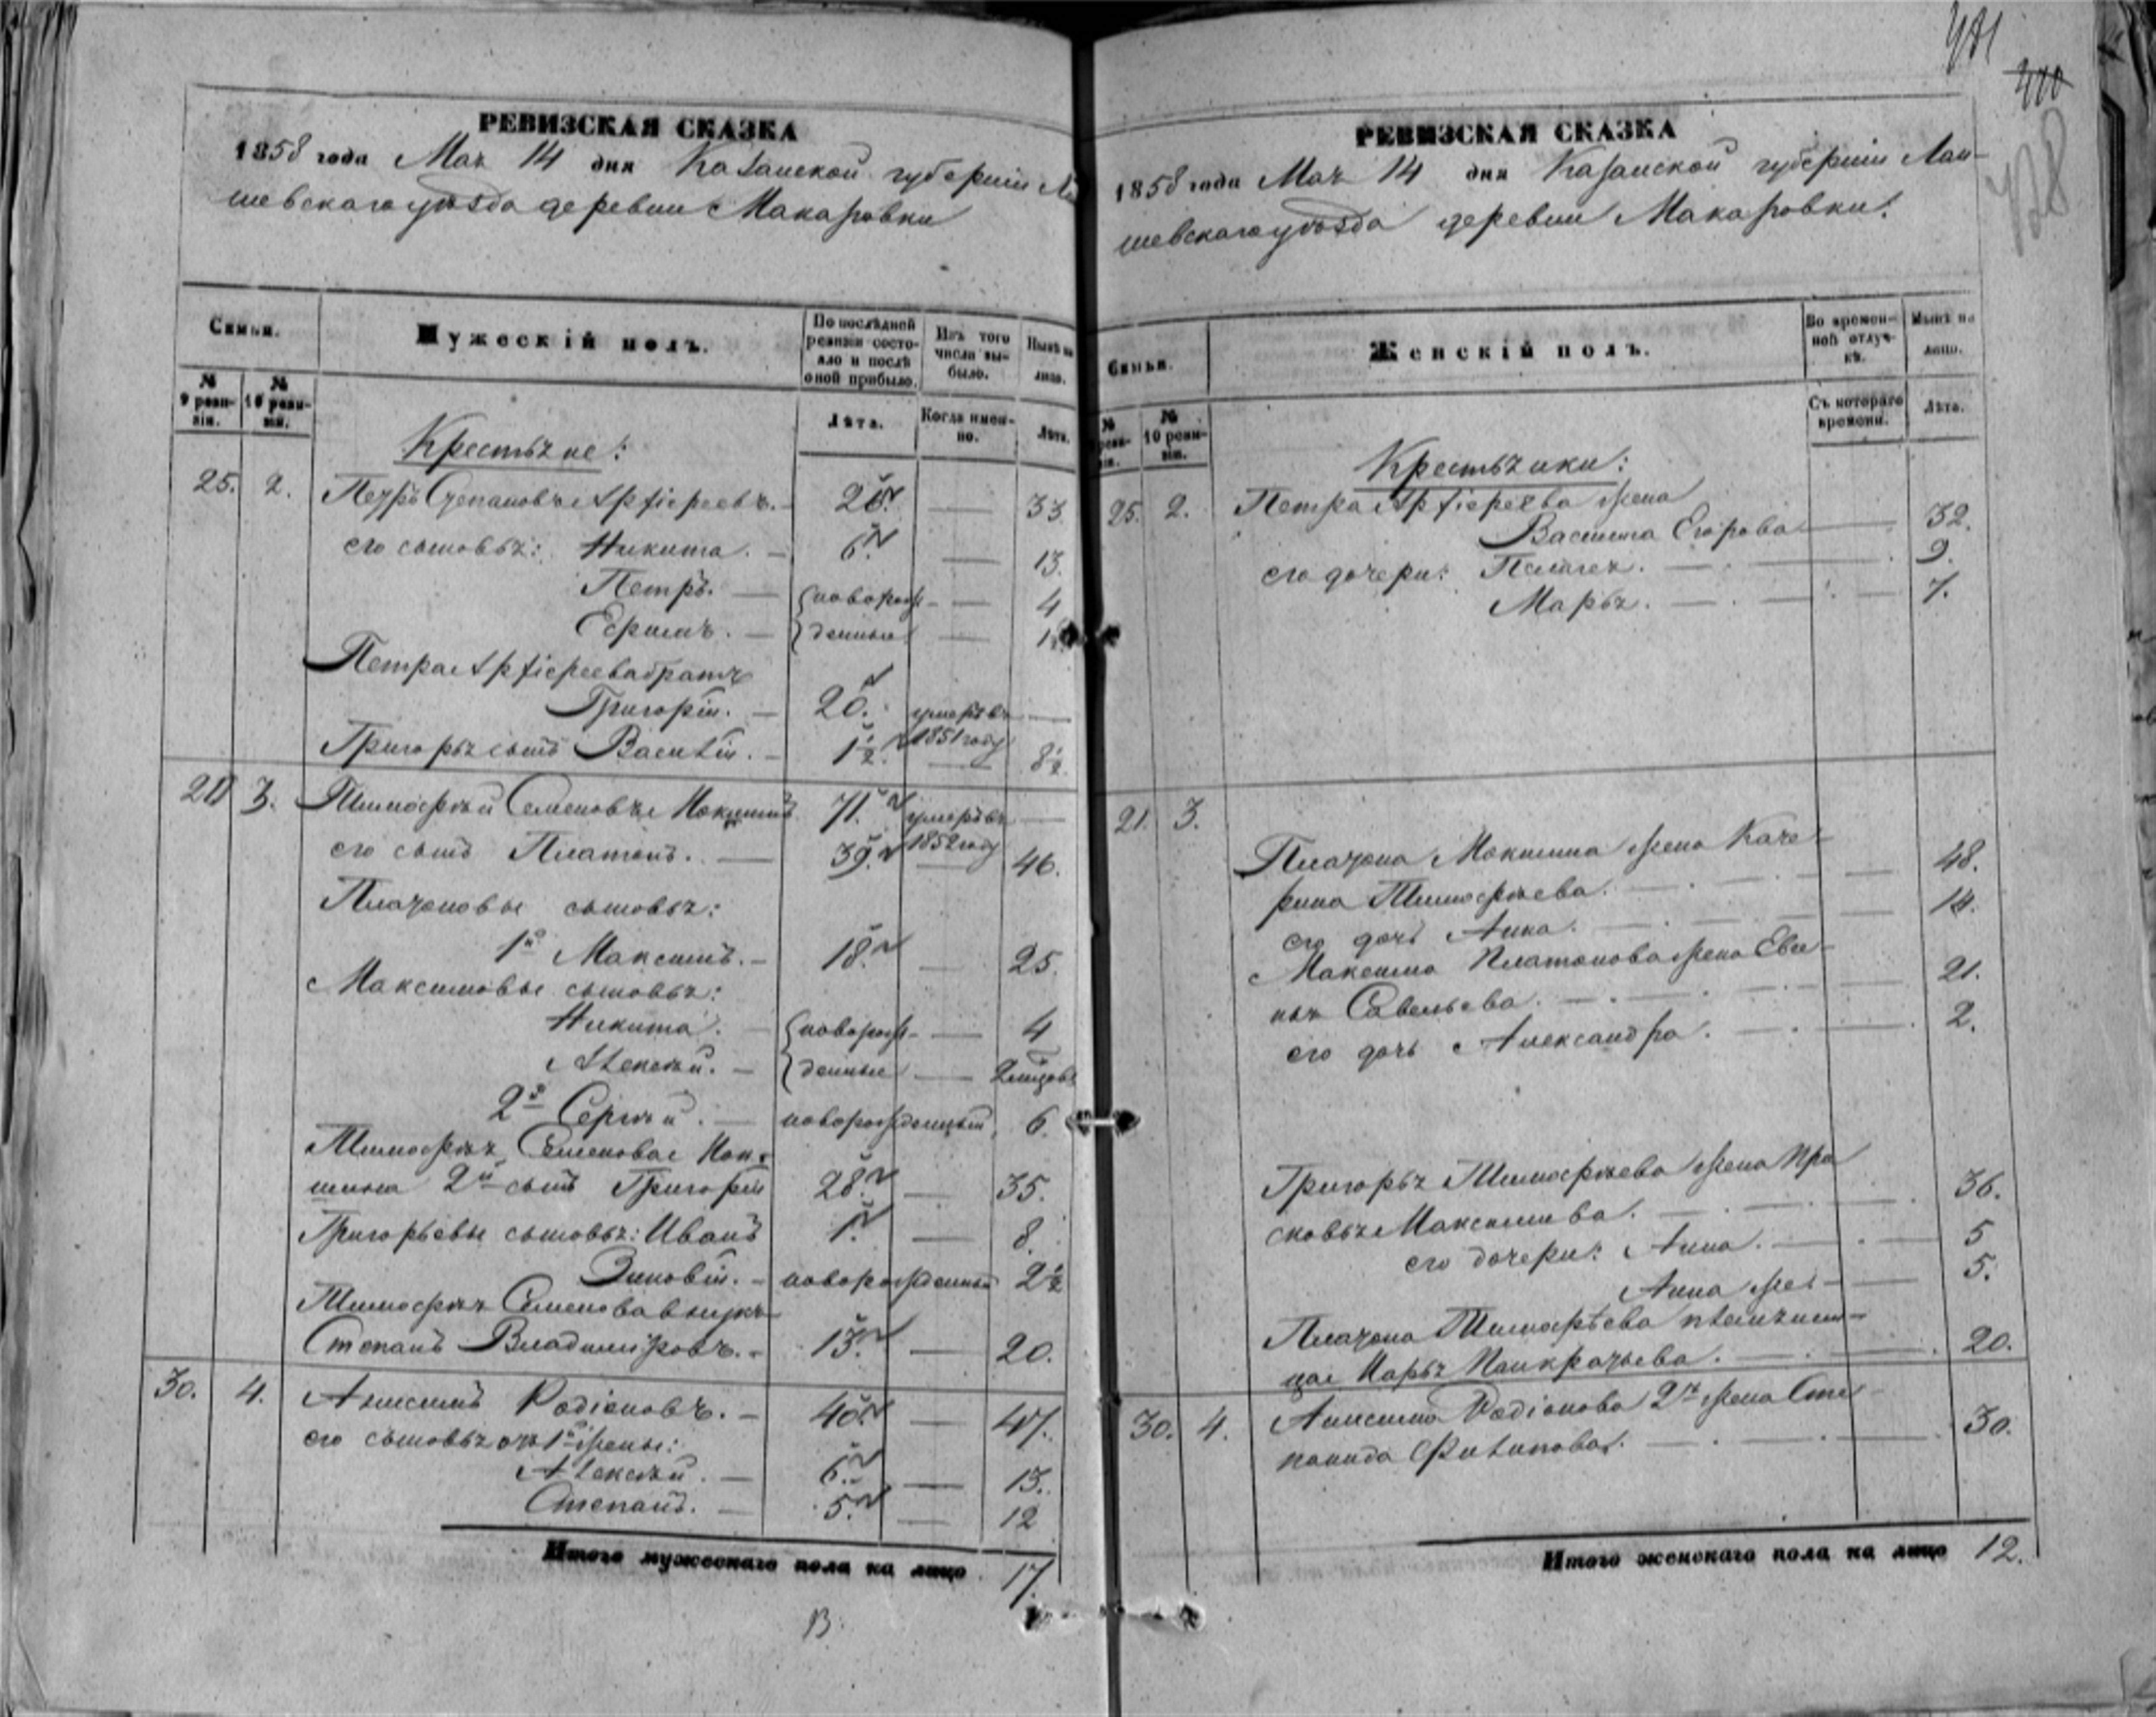 481
480
428
РЕВИЗСКАЯ СКАЗКА
1858 года Мая 14 дня Казанской губернiи Ла
шевскаго уѣзда деревни Макаровки
Семьи.
Мужескiй полъ.
По послѣдней ревизiи состояло и послѣ оной прибыло.
Изъ того числа выбыло.
Нынѣ на лицо.
№ 9 ревизiи.
№ 10 ревизiи.
Лѣта.
Когда именно.
Лѣта.
Крестьяне:
25. 2. Петръ Степановъ Архiереевъ. — 26. — 33.
его сыновья: Никита. — 6. — 13.
Петръ. — { новорож- — 4
Ефимъ. — { денные — 1
Петра Архiереева братъ
Григорiй. — 20. умеръ въ —
1851 году
Григорья сынъ Василiй. — 1½. — 8½.
21 3. Тимофѣй Семеновъ Мокшинъ 71. умеръ въ —
1852 году
его сынъ Платонъ. — 39. — 46.
Платоновы сыновья:
1й Максимъ. — 18. — 25.
Максимовы сыновья:
Никита. — { новорож- — 4
Алексѣй. — { денные — 2 мѣсяцовъ
2й Сергѣй. — новорожденный 6.
Тимофѣя Семенова Мок-
шина 2й сынъ Григорiй 28. — 35.
Григорьевы сыновья: Иванъ 1. — 8.
Зиновiй. — новорожденный 2½
Тимофѣя Семенова внукъ
Степанъ Владимiровъ. — 13. — 20.
30. 4. Анисимъ Родiоновъ. — 40. — 47.
его сыновья отъ 1й жены:
Алексѣй. — 6. — 13.
Степанъ. — 5. — 12
Итого мужескаго пола на лицо 17.
В.
РЕВИЗСКАЯ СКАЗКА
1858 года Мая 14 дня Казанской губернiи Лаи-
шевскаго уѣзда деревни Макаровки.
Семьи.
Женскiй полъ.
Во временной отлучкѣ.
Нынѣ на лицо.
№ ревизiи.
№ 10 ревизiи.
Съ котораго времени.
Лѣта.
Крестьянки:
25. 2. Петра Архiереева жена
Васимса Егорова — 32.
его дочери: Пелагея. — 9.
Марья. — 7.
21. 3.
Платона Мокшина жена Кате-
рина Тимофѣева. — 48.
его дочь Анна. — 14.
Максима Платонова жена Евге-
нья Савельева. — 21.
его дочь Александра. — 2.
Григорья Тимофѣева жена Пра
сковья Максимова. — 36.
его дочери: Анна. — 5
Анна же — 5.
Платона Тимофѣева племянни-
ца Марья Панкратьева. — 20.
30. 4. Анисима Родiонова 2я жена Сте
панида Филипова. — 30.
Итого женскаго пола на лицо 12.